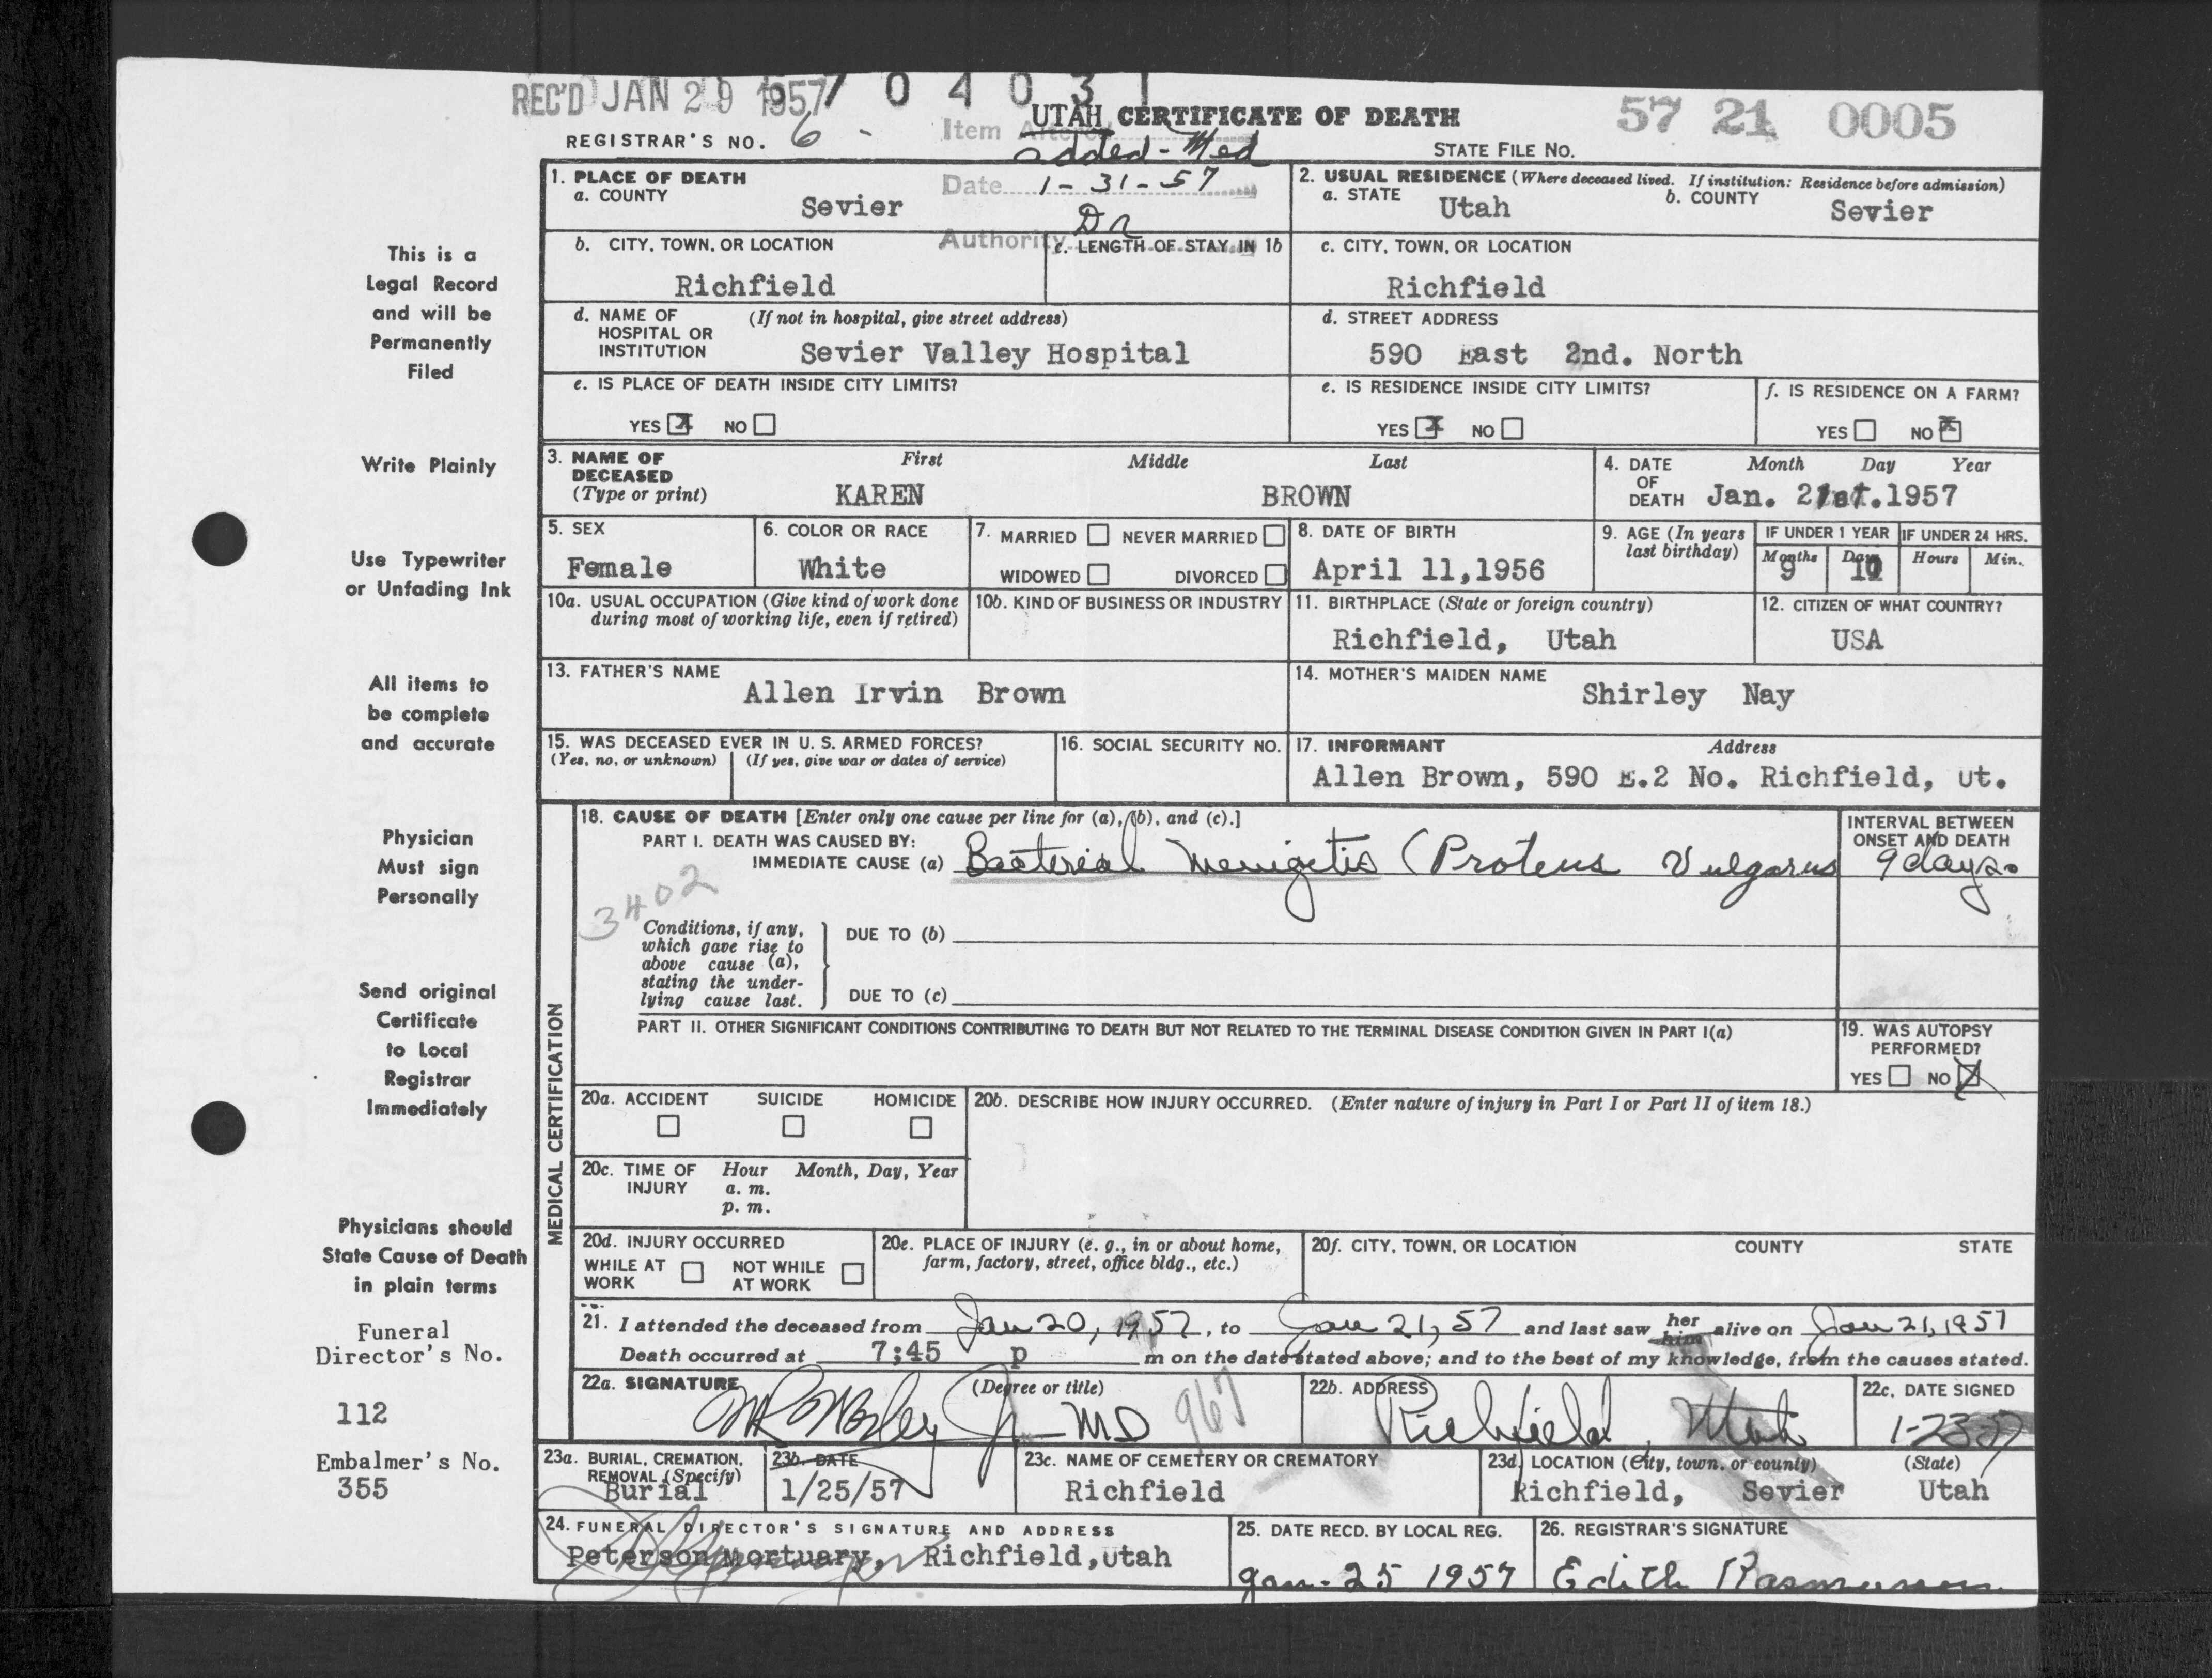 REC'D JAN 29 1957 7 0 4 0 3 1
UTAH CERTIFICATE OF DEATH
57 21 0005
REGISTRAR'S NO. 6 -
Item Altered
added - Med
STATE FILE NO.
Date 1-31-57
Dr
Authority
1. PLACE OF DEATH
a. COUNTY
Sevier
2. USUAL RESIDENCE (Where deceased lived. If institution: Residence before admission)
a. STATE Utah b. COUNTY Sevier
b. CITY, TOWN, OR LOCATION
Richfield
c. LENGTH OF STAY IN 1b
c. CITY, TOWN, OR LOCATION
Richfield
d. NAME OF HOSPITAL OR INSTITUTION (If not in hospital, give street address)
Sevier Valley Hospital
d. STREET ADDRESS
590 East 2nd. North
e. IS PLACE OF DEATH INSIDE CITY LIMITS?
YES X NO
e. IS RESIDENCE INSIDE CITY LIMITS?
YES X NO
f. IS RESIDENCE ON A FARM?
YES NO X
3. NAME OF DECEASED (Type or print)
First Middle Last
KAREN BROWN
4. DATE OF DEATH Month Day Year
Jan. 21st.1957
5. SEX
Female
6. COLOR OR RACE
White
7. MARRIED NEVER MARRIED
WIDOWED DIVORCED
8. DATE OF BIRTH
April 11,1956
9. AGE (In years last birthday)
IF UNDER 1 YEAR IF UNDER 24 HRS.
Months Days Hours Min.
9 10
10a. USUAL OCCUPATION (Give kind of work done during most of working life, even if retired)
10b. KIND OF BUSINESS OR INDUSTRY
11. BIRTHPLACE (State or foreign country)
Richfield, Utah
12. CITIZEN OF WHAT COUNTRY?
USA
13. FATHER'S NAME
Allen Irvin Brown
14. MOTHER'S MAIDEN NAME
Shirley Nay
15. WAS DECEASED EVER IN U. S. ARMED FORCES?
(Yes, no, or unknown) (If yes, give war or dates of service)
16. SOCIAL SECURITY NO.
17. INFORMANT Address
Allen Brown, 590 E.2 No. Richfield, Ut.
MEDICAL CERTIFICATION
18. CAUSE OF DEATH [Enter only one cause per line for (a), (b), and (c).]
PART I. DEATH WAS CAUSED BY:
IMMEDIATE CAUSE (a) Bacterial Menigetis (Proteus Vulgarus
INTERVAL BETWEEN ONSET AND DEATH
9 days
3402
Conditions, if any, which gave rise to above cause (a), stating the underlying cause last.
DUE TO (b)
DUE TO (c)
PART II. OTHER SIGNIFICANT CONDITIONS CONTRIBUTING TO DEATH BUT NOT RELATED TO THE TERMINAL DISEASE CONDITION GIVEN IN PART I(a)
19. WAS AUTOPSY PERFORMED?
YES NO X
20a. ACCIDENT SUICIDE HOMICIDE
20b. DESCRIBE HOW INJURY OCCURRED. (Enter nature of injury in Part I or Part II of item 18.)
20c. TIME OF INJURY Hour Month, Day, Year
a. m.
p. m.
20d. INJURY OCCURRED
WHILE AT WORK NOT WHILE AT WORK
20e. PLACE OF INJURY (e. g., in or about home, farm, factory, street, office bldg., etc.)
20f. CITY, TOWN, OR LOCATION COUNTY STATE
21. I attended the deceased from Jan 20, 1957, to Jan 21, 57 and last saw her him alive on Jan 21, 1957
Death occurred at 7;45 p m on the date stated above; and to the best of my knowledge, from the causes stated.
22a. SIGNATURE (Degree or title)
Jr MD 967
22b. ADDRESS
Richfield Utah
22c. DATE SIGNED
1-23-57
23a. BURIAL, CREMATION, REMOVAL (Specify)
Burial
23b. DATE
1/25/57
23c. NAME OF CEMETERY OR CREMATORY
Richfield
23d. LOCATION (City, town, or county) (State)
Richfield, Sevier Utah
24. FUNERAL DIRECTOR'S SIGNATURE AND ADDRESS
Peterson Mortuary, Richfield,Utah
25. DATE RECD. BY LOCAL REG.
Jan- 25 1957
26. REGISTRAR'S SIGNATURE
Edith Rasmussen
This is a
Legal Record
and will be
Permanently
Filed
Write Plainly
Use Typewriter
or Unfading Ink
All items to
be complete
and accurate
Physician
Must sign
Personally
Send original
Certificate
to Local
Registrar
Immediately
Physicians should
State Cause of Death
in plain terms
Funeral
Director's No.
112
Embalmer's No.
355